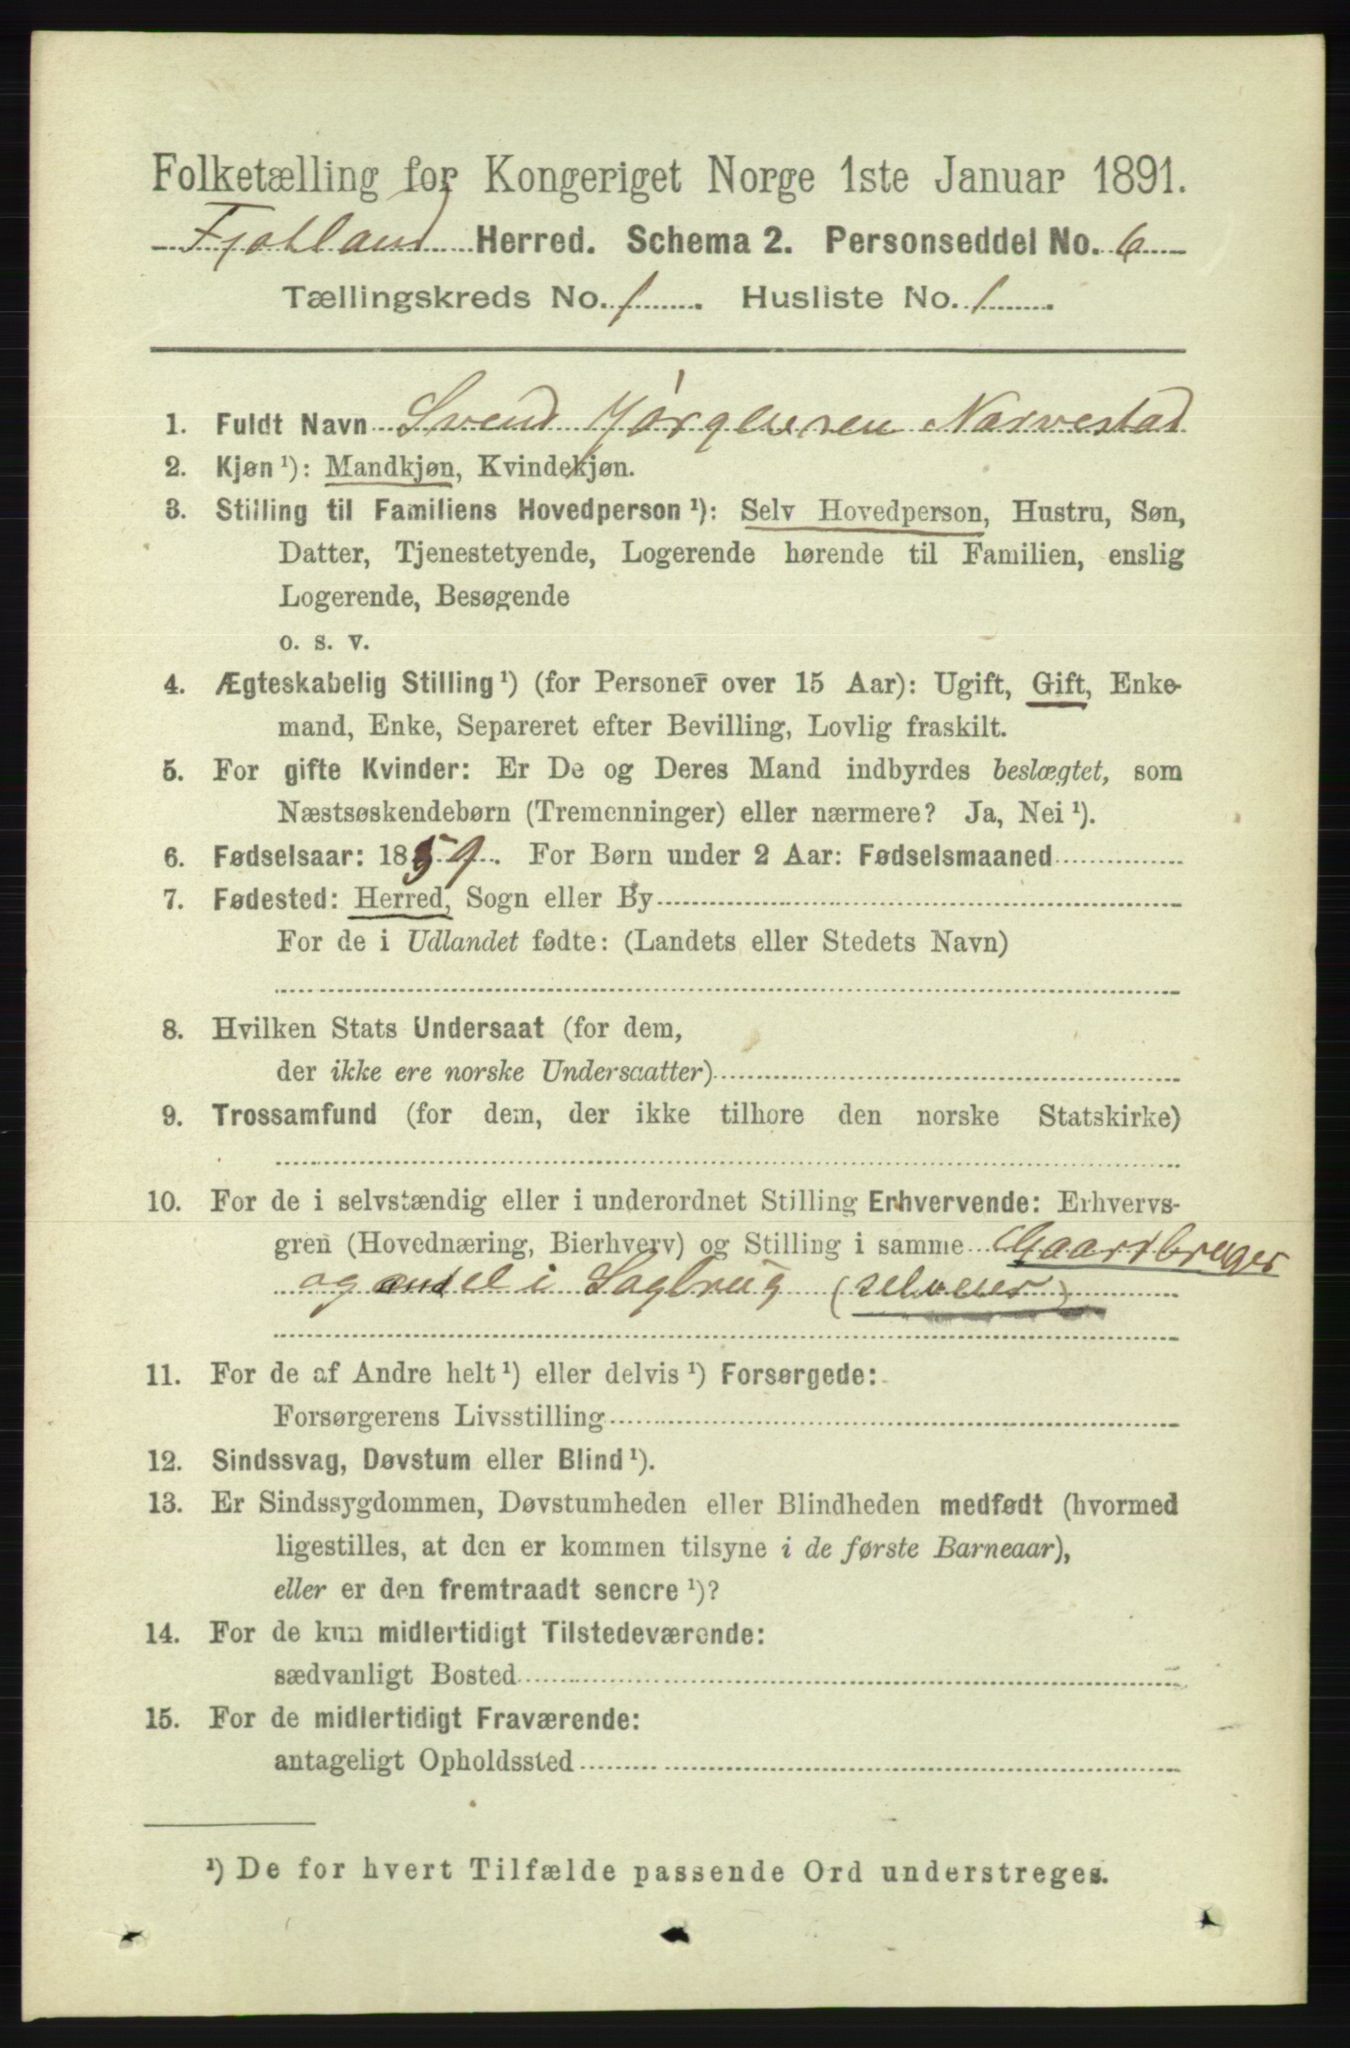 Folketælling for Kongeriget Norge 1ste Januar 1891.
Fjotland Herred. Schema 2. Personseddel No. 6
Tællingskreds No. 1. Husliste No. 1.
1. Fuldt Navn Svend Jørgensen Narvestad
2. Kjøn ¹): Mandkjøn, Kvindekjøn.
3. Stilling til Familiens Hovedperson ¹): Selv Hovedperson, Hustru, Søn,
Datter, Tjenestetyende, Logerende hørende til Familien, enslig
Logerende, Besøgende
o. s. v.
4. Ægteskabelig Stilling ¹) (for Personer over 15 Aar): Ugift, Gift, Enke-
mand, Enke, Separeret efter Bevilling, Lovlig fraskilt.
5. For gifte Kvinder: Er De og Deres Mand indbyrdes beslægtet, som
Næstsøskendebørn (Tremenninger) eller nærmere? Ja, Nei ¹).
6. Fødselsaar: 1859. For Børn under 2 Aar: Fødselsmaaned
7. Fødested: Herred, Sogn eller By
For de i Udlandet fødte: (Landets eller Stedets Navn)
8. Hvilken Stats Undersaat (for dem,
der ikke ere norske Undersaatter)
9. Trossamfund (for dem, der ikke tilhøre den norske Statskirke)
10. For de i selvstændig eller i underordnet Stilling Erhvervende: Erhvervs-
gren (Hovednæring, Bierhverv) og Stilling i samme Gaardbruger
og andel i Sagbrug (selveier)
11. For de af Andre helt ¹) eller delvis ¹) Forsørgede:
Forsørgerens Livsstilling
12. Sindssvag, Døvstum eller Blind ¹).
13. Er Sindssygdommen, Døvstumheden eller Blindheden medfødt (hvormed
ligestilles, at den er kommen tilsyne i de første Barneaar),
eller er den fremtraadt senere ¹)?
14. For de kun midlertidigt Tilstedeværende:
sædvanligt Bosted
15. For de midlertidigt Fraværende:
antageligt Opholdssted
¹) De for hvert Tilfælde passende Ord understreges.